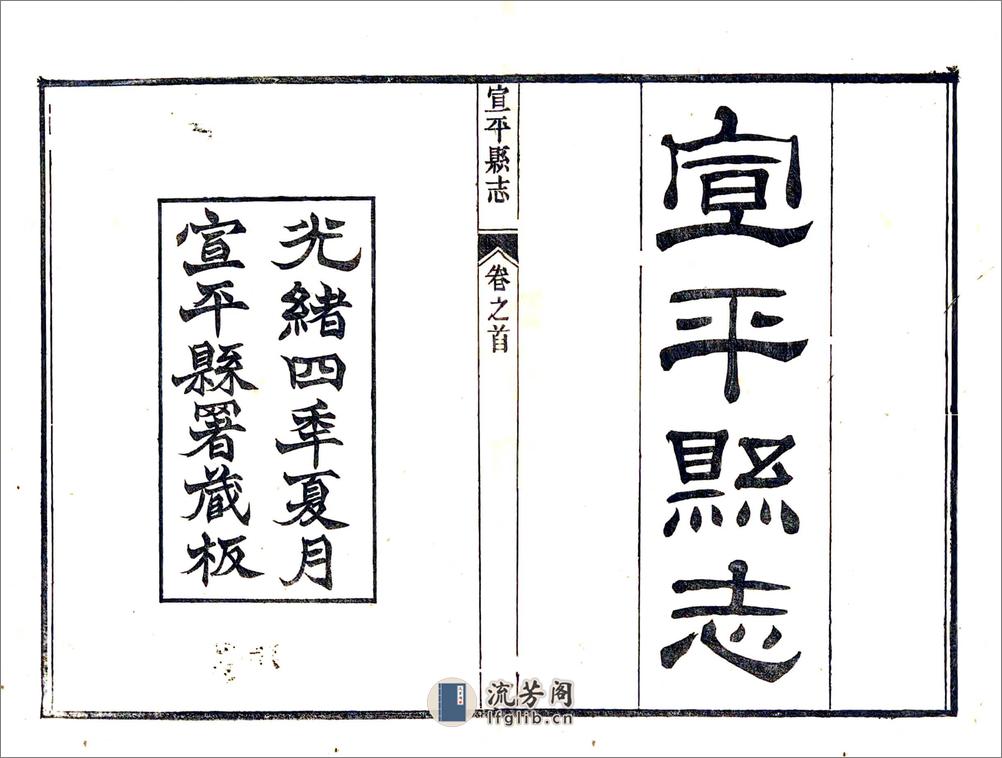 宣平縣志
宣平縣志
卷之首
光緒四季夏月
宣平縣署藏板
流芳阁
lfglib.cn